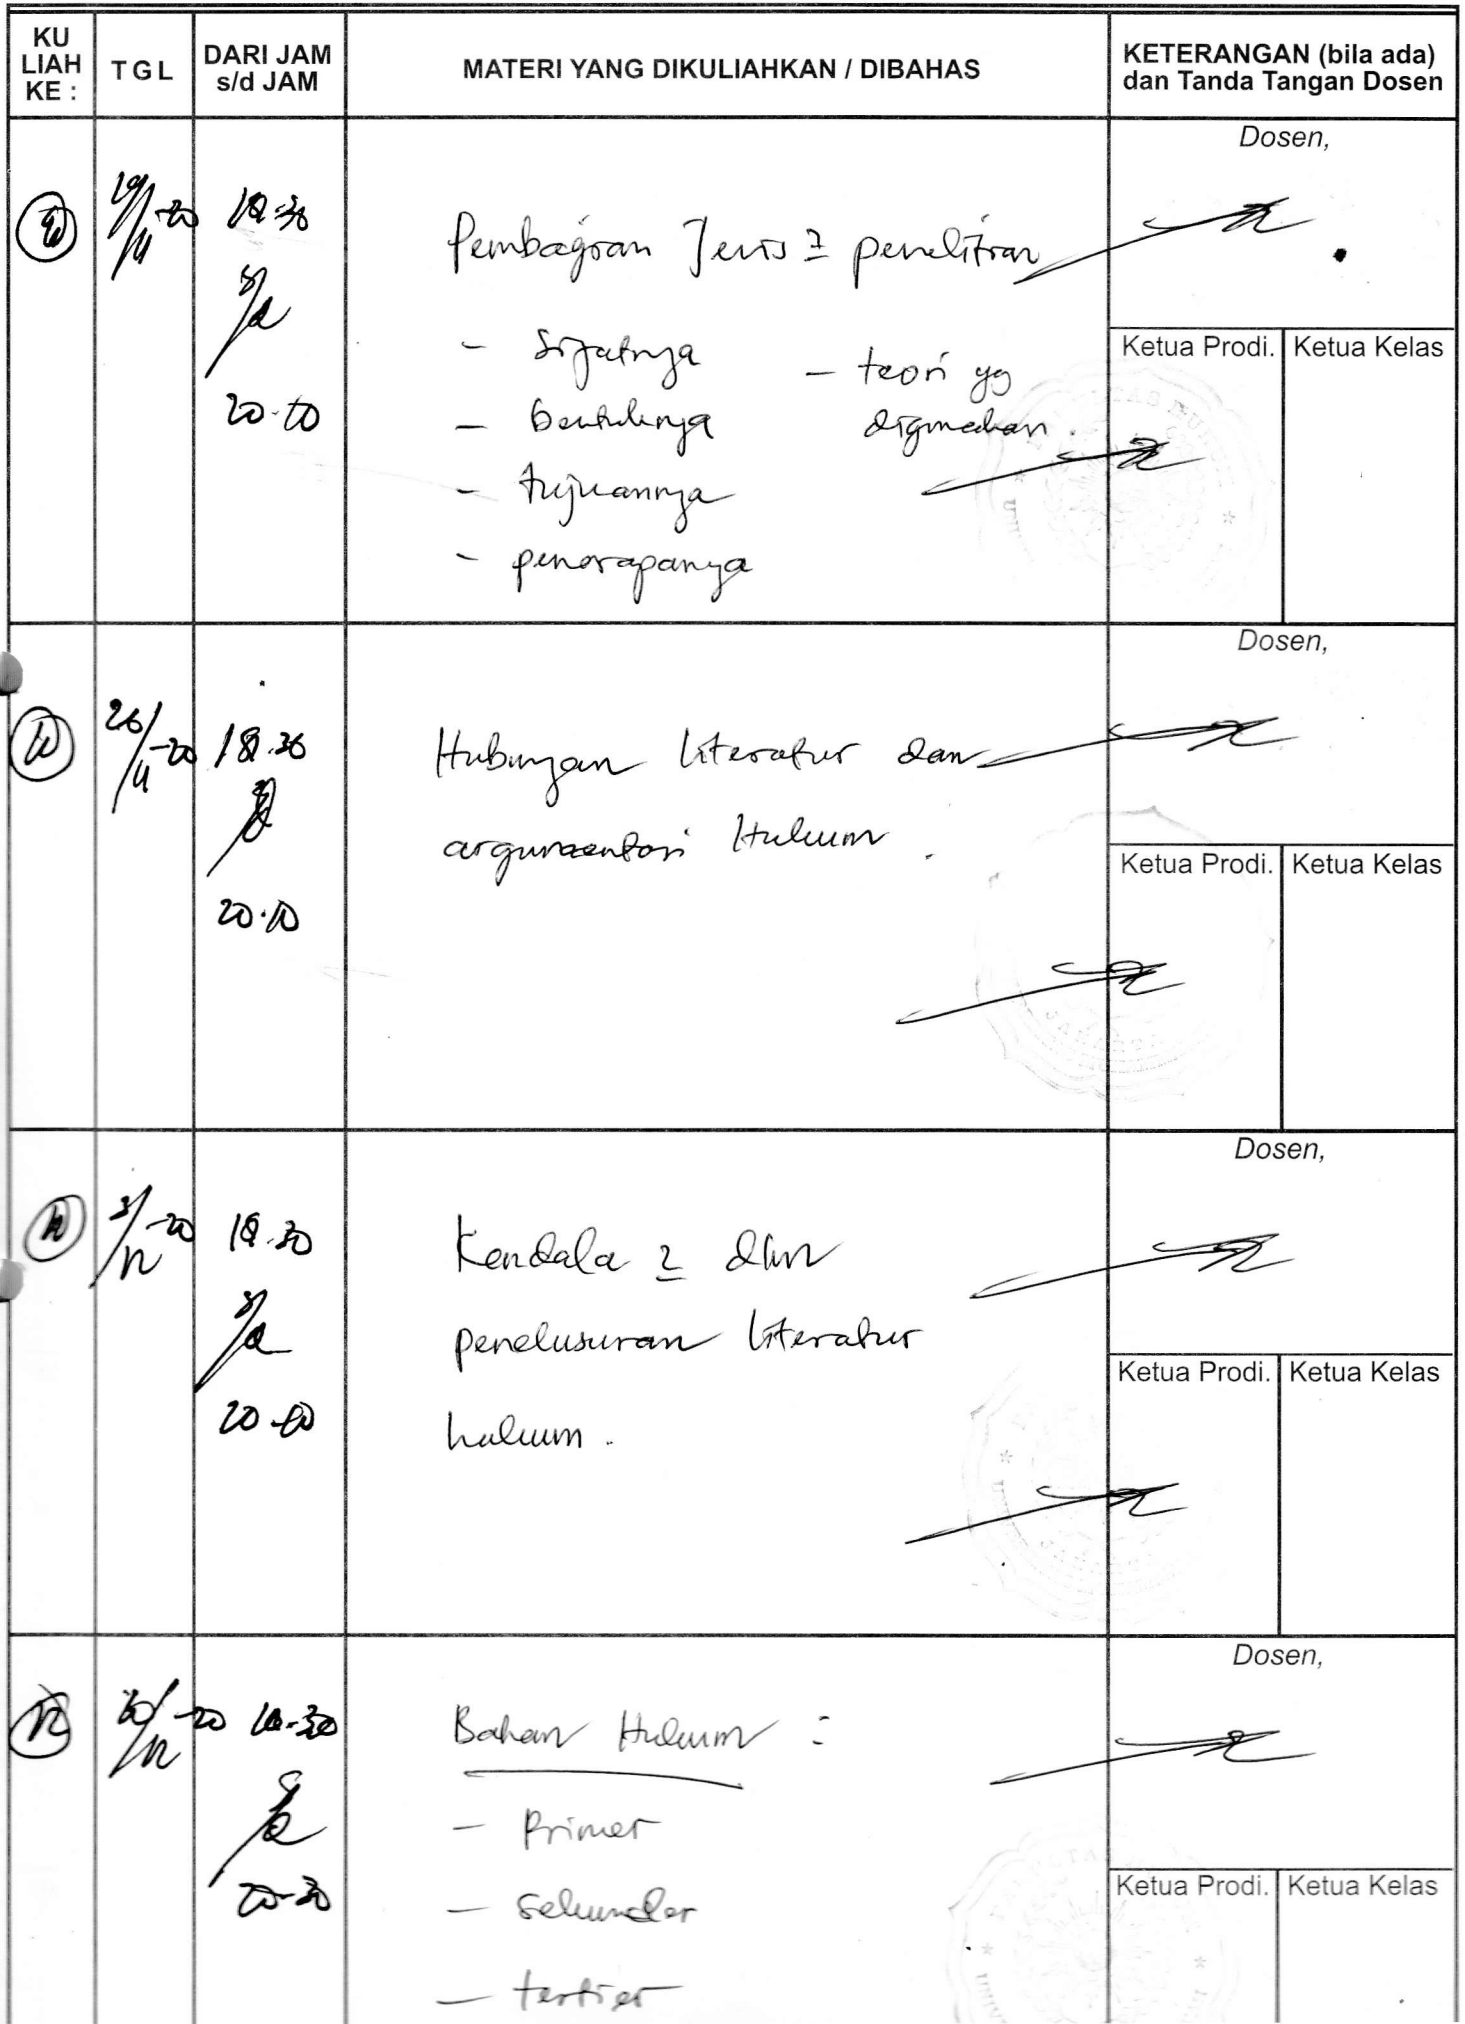 KU
LIAH
KE :
TGL
DARI JAM
s/d JAM
MATERI YANG DIKULIAHKAN / DIBAHAS
KETERANGAN (bila ada)
dan Tanda Tangan Dosen
Dosen,
19/11-20
18.30
s/d
Pembagian Jenis2 penelitian
- Sifatnya
- bentuknya
- tujuannya
- penerapanya
- teori yg
digunakan.
Ketua Prodi.
Ketua Kelas
Dosen,
26/11-20
18.30
20.10
Hubungan literatur dan
argumentasi Hukum.
Ketua Prodi.
Ketua Kelas
Dosen,
3/12-20
18.30
s/d
Kendala2 dlm
penelusuran literatur
hukum.
Ketua Prodi.
Ketua Kelas
Dosen,
12
10/12-20
18.30
s/d
Bahan Hukum :
- Primer
- Sekunder
- tertier
Ketua Prodi.
Ketua Kelas